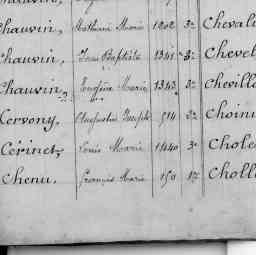 Chauvin, Mathurin Marie 1202 3e Cheval
Chauvin, Jean Baptiste 1341 2e Chevel
Chauvin, Eugène Marie 1343 2e Cheville
Cervony, Augustin Joseph 514 2e Choin
Cérinet, Louis Marie 1440 3e Chole
Chenu, François Marie 150 1re Choll